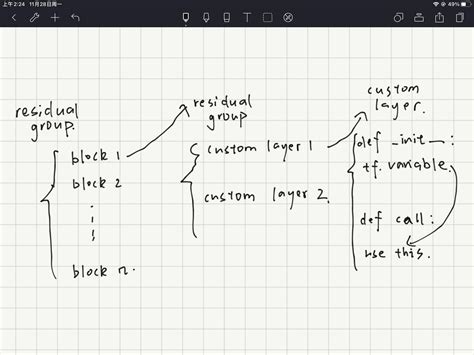 上午2:24 11月28日周一
49%
residual
group.
block 1
block 2
block n.
residual
group
custom layer 1
custom layer 2
custom
layer.
def _init_ :
tf. variable.
def call :
use this.